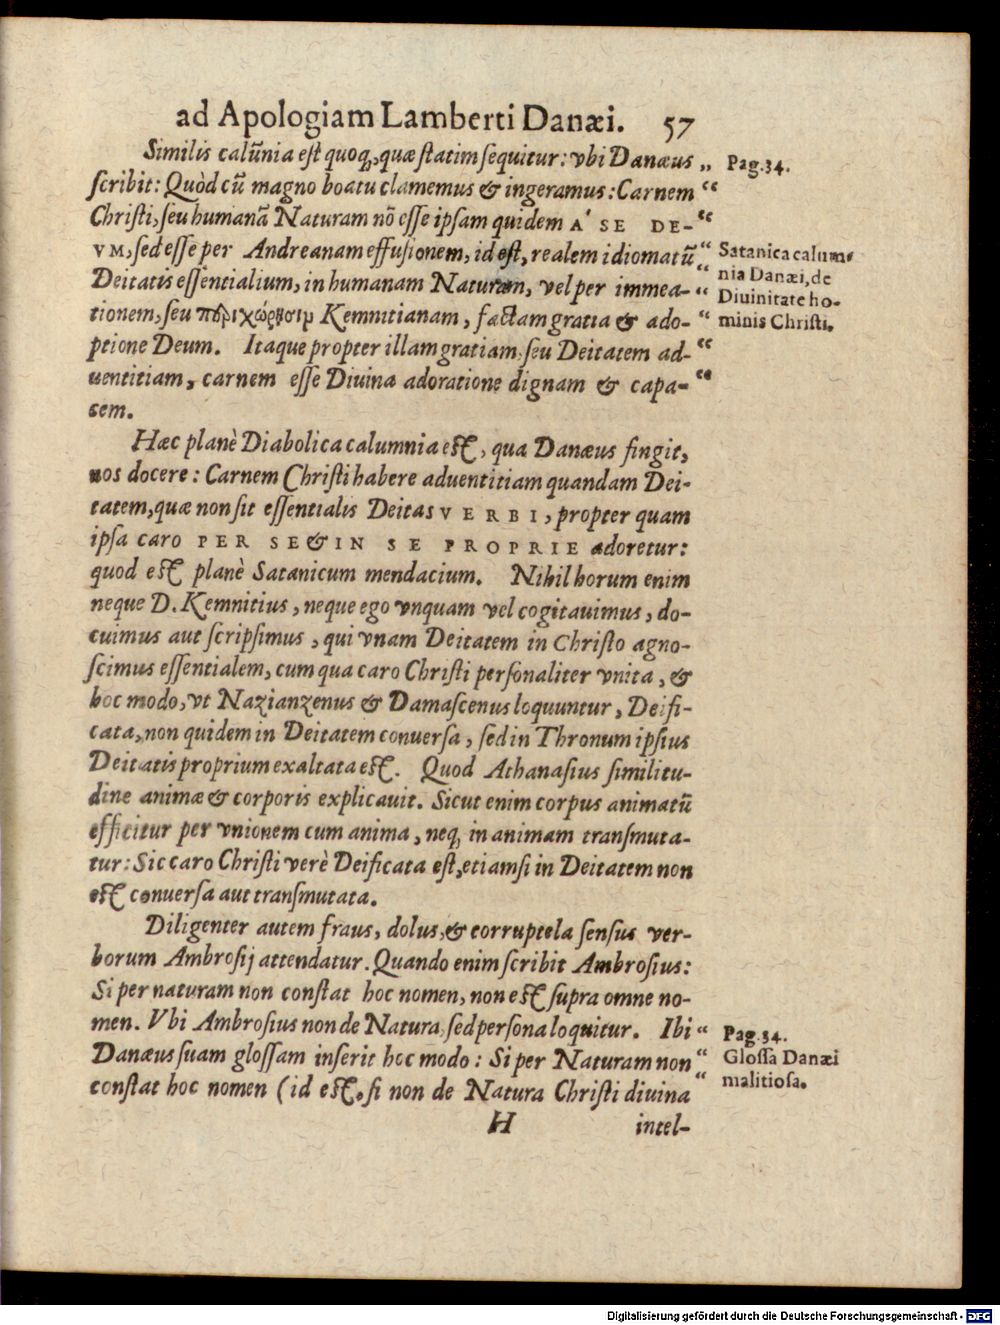 ad Apologiam Lamberti Danæi. 57
Similis calũnia est quoq́, quæ statim sequitur: vbi Danæus „
scribit: Quòd cũ magno boatu clamemus & ingeramus: Carnem “
Christi, seu humanã Naturam nõ esse ipsam quidem A' SE DE- “
VM, sed esse per Andreanam effusionem, id est, realem idiomatũ “
Deitatis essentialium, in humanam Naturam, vel per immea- “
tionem, seu περιχώρησιμ Kemnitianam, factam gratia & ado- “
ptione Deum. Itaque propter illam gratiam, seu Deitatem ad- “
uentitiam, carnem esse Diuina adoratione dignam & capa- “
cem.
Pag. 34.
Satanica calum-
nia Danæi, de
Diuinitate ho-
minis Christi.
Hæc planè Diabolica calumnia est, qua Danæus fingit,
nos docere: Carnem Christi habere aduentitiam quandam Dei-
tatem, quæ non sit essentialis Deitas VERBI, propter quam
ipsa caro PER SE & IN SE PROPRIE adoretur:
quod est planè Satanicum mendacium. Nihil horum enim
neque D. Kemnitius, neque ego vnquam vel cogitauimus, do-
cuimus aut scripsimus, qui vnam Deitatem in Christo agno-
scimus essentialem, cum qua caro Christi personaliter vnita, &
hoc modo, vt Nazianzenus & Damascenus loquuntur, Deifi-
cata, non quidem in Deitatem conuersa, sed in Thronum ipsius
Deitatis proprium exaltata est. Quod Athanasius similitu-
dine animæ & corporis explicauit. Sicut enim corpus animatũ
efficitur per vnionem cum anima, neq́ in animam transmuta-
tur: Sic caro Christi verè Deificata est, etiamsi in Deitatem non
est conuersa aut transmutata.
Diligenter autem fraus, dolus, & corruptela sensus ver-
borum Ambrosij attendatur. Quando enim scribit Ambrosius:
Si per naturam non constat hoc nomen, non est supra omne no-
men. Vbi Ambrosius non de Natura, sed persona loquitur. Ibi “
Danæus suam glossam inserit hoc modo: Si per Naturam non “
constat hoc nomen (id est, si non de Natura Christi diuina “
Pag. 34.
Glossa Danæi
malitiosa.
H intel-
Digitalisierung gefördert durch die Deutsche Forschungsgemeinschaft - DFG